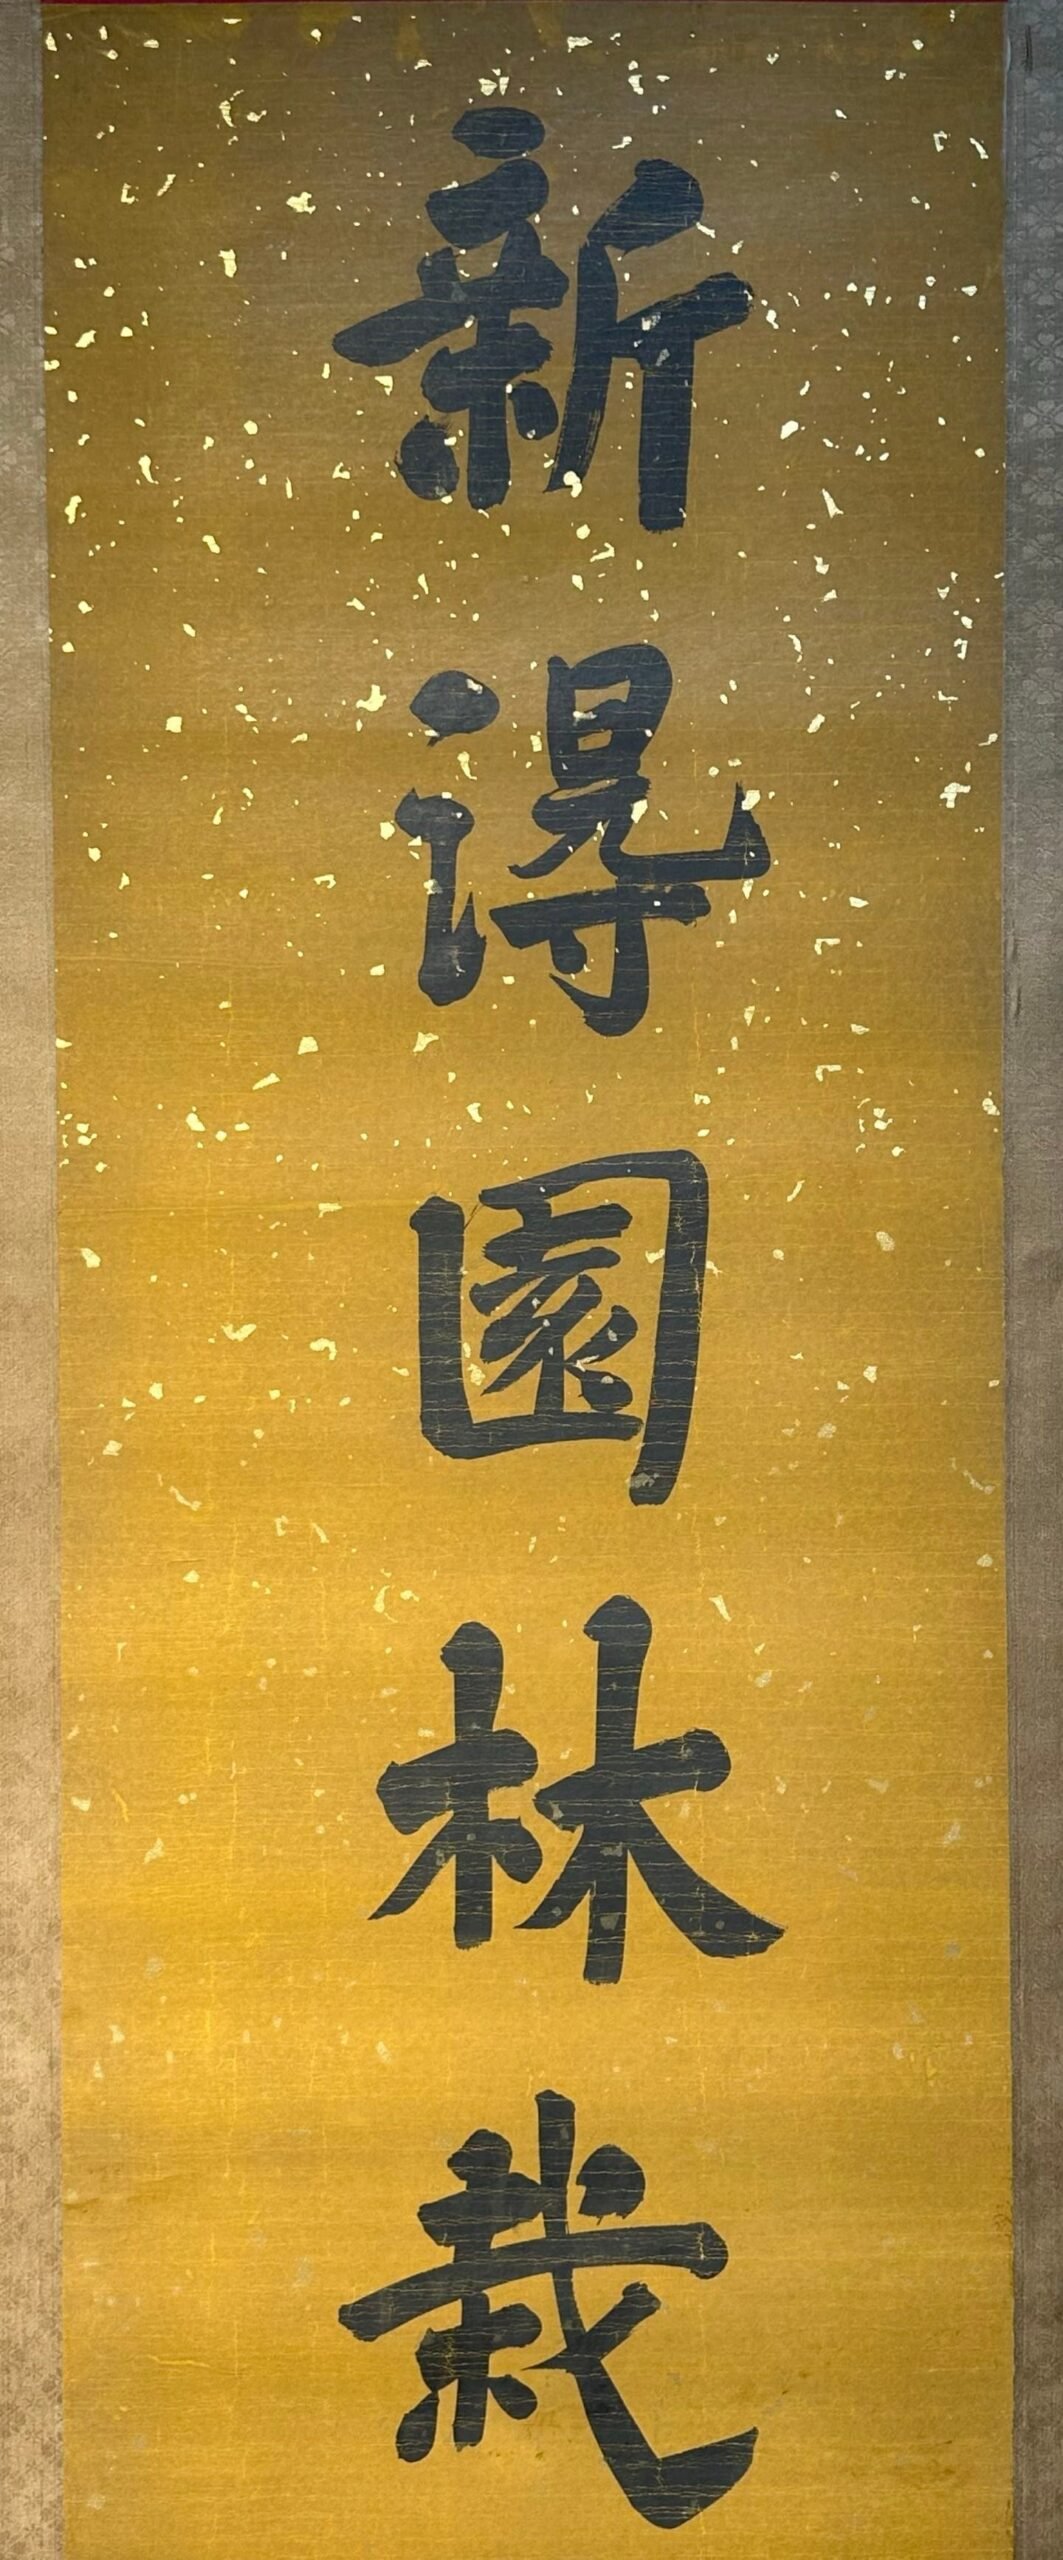 新得園林栽